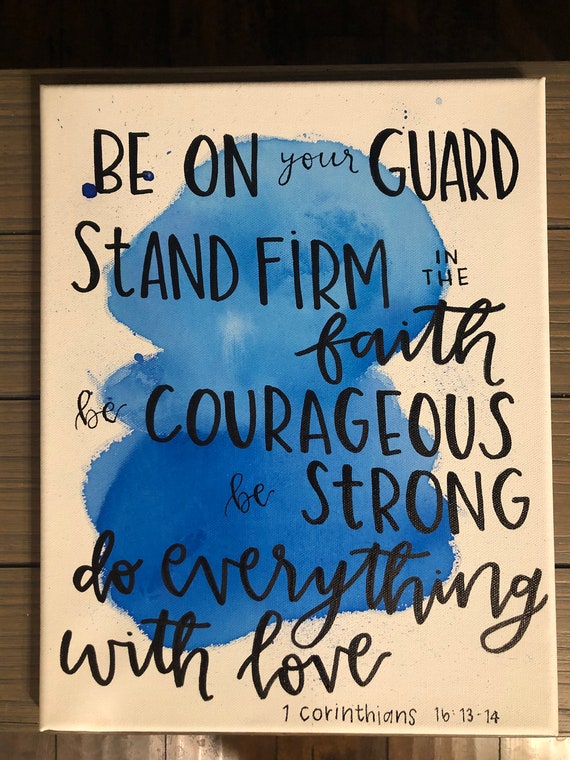 BE ON your GUARD
StAND FiRM IN THE
faith
be COURAGEOUS
be StRONG
do everything
with love
1 corinthians 16:13-14